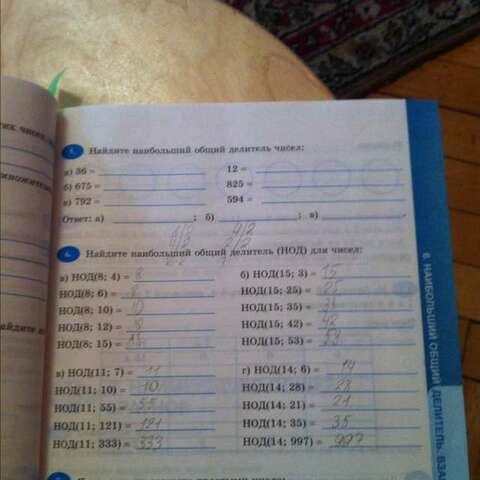 тих чисел
5. Найдите наибольший общий делитель чисел:
а) 36 = 12 =
б) 675 = 825 =
в) 792 = 594 =
Ответ: а) ; б) ; в) .
6. Найдите наибольший общий делитель (НОД) для чисел:
а) НОД(8; 4) = 8 б) НОД(15; 3) = 15
НОД(8; 6) = НОД(15; 25) = 25
НОД(8; 10) = 10 НОД(15; 35) =
НОД(8; 12) = НОД(15; 42) = 42
НОД(8; 15) = НОД(15; 53) = 53
в) НОД(11; 7) = 11 г) НОД(14; 6) = 14
НОД(11; 10) = 10 НОД(14; 28) = 28
НОД(11; 55) = 55 НОД(14; 21) = 21
НОД(11; 121) = 121 НОД(14; 35) = 35
НОД(11; 333) = 333 НОД(14; 997) = 997
6. НАИБОЛЬШИЙ ОБЩИЙ ДЕЛИТЕЛЬ.